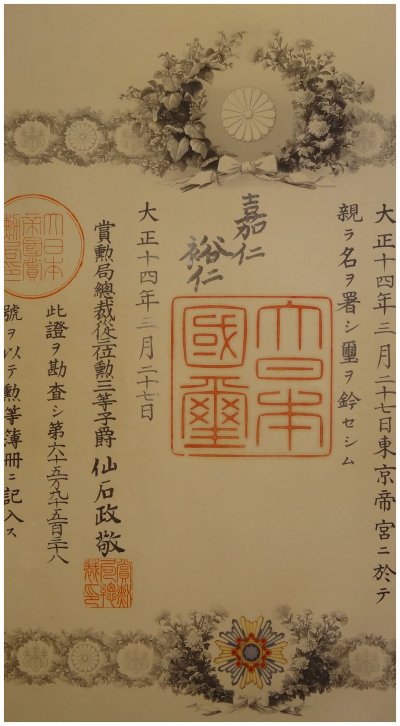 大正十四年三月二十七日東京帝宮ニ於テ
親ラ名ヲ署シ璽ヲ鈐セシム
嘉仁
裕仁
大日本
國璽
大正十四年三月二十七日
賞勲局總裁從三位勲三等子爵 仙石政敬
此證ヲ勘査シ第六十五万九千五百三十八
號ヲ以テ勲等簿册ニ記入ス
大日本
帝國賞
勲局印